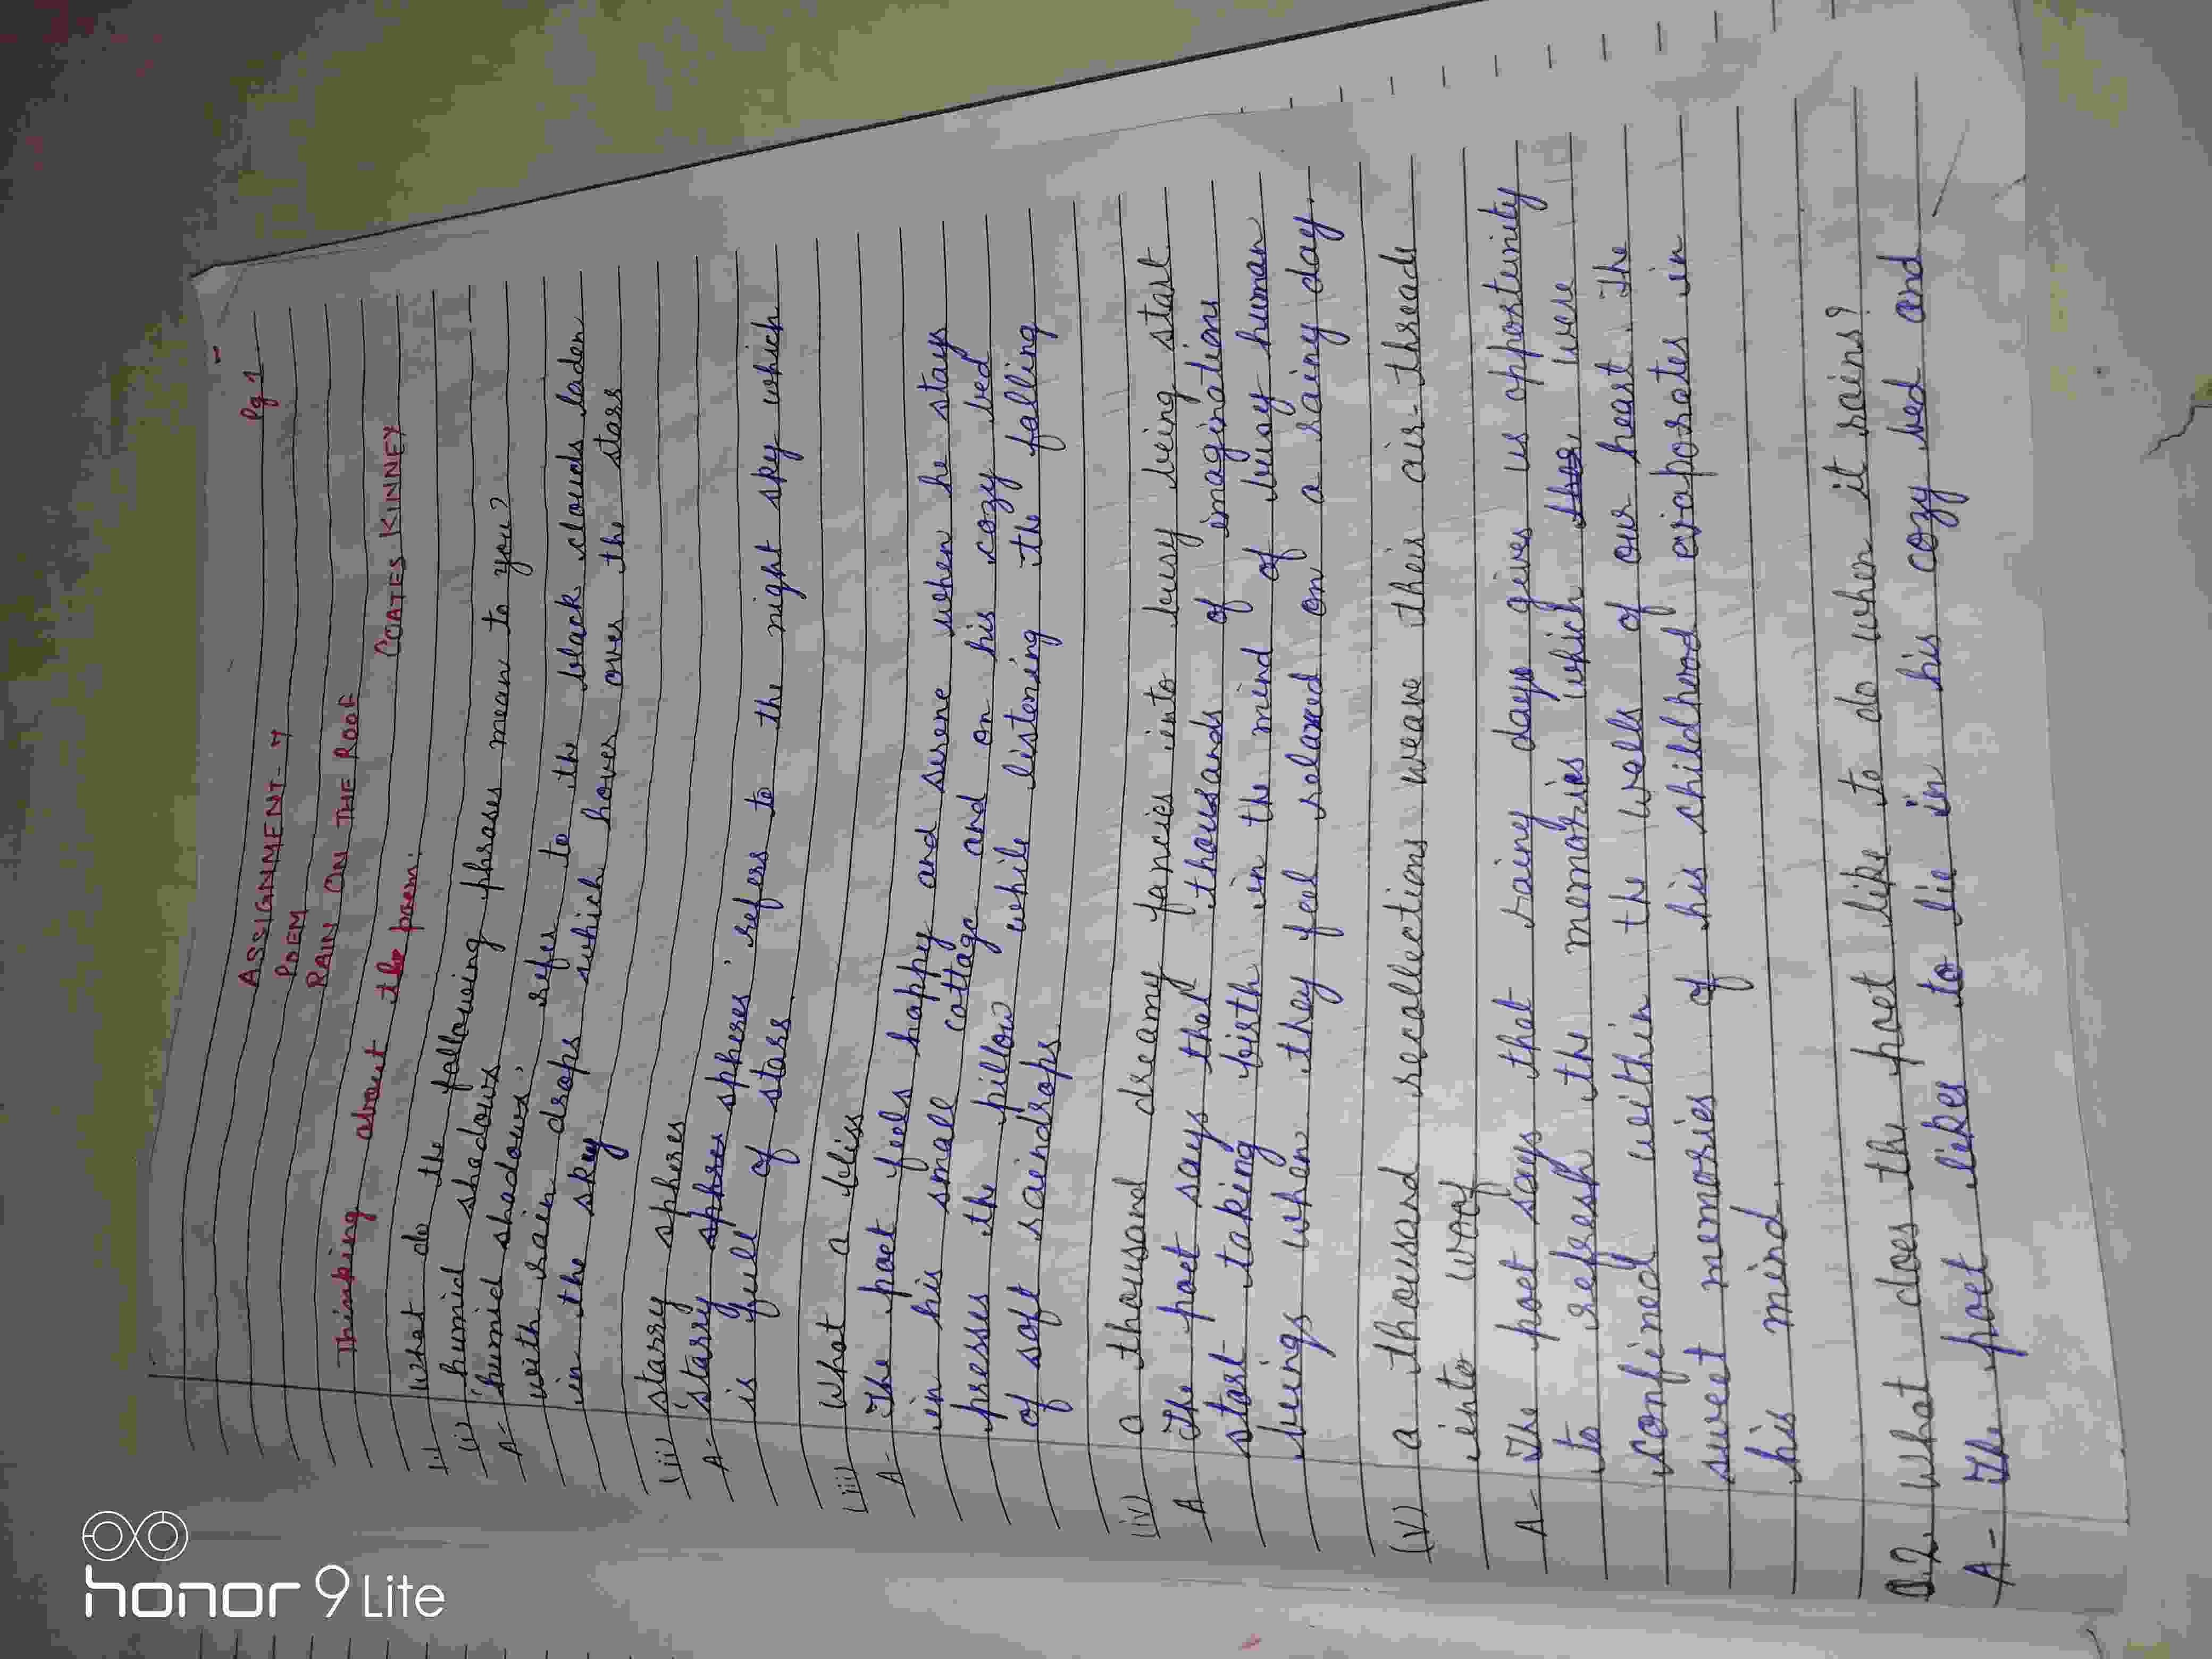 Pg 1
ASSIGNMENT-7
POEM
RAIN ON THE ROOF
COATES KINNEY
Thinking about the poem.
What do the following phrases mean to you?
(i) humid shadows
A- 'humid shadows' refer to the black clouds laden
with rain drops which hover over the stars
in the sky.
(ii) starry spheres
A- 'starry sphres spheres' refers to the night sky which
is full of stars.
(iii) What a bliss
A- The poet feels happy and serene when he stays
in his small cottage and on his cozy bed
presses the pillow while listening the falling
of soft raindrops.
(iv) a thousand dreamy fancies into busy being start
A The poet says that thousands of imaginations
start taking birth in the mind of busy human
beings when they feel relaxed on a rainy day.
(v) a thousand recollections weave their air-threads
into woof
A- The poet says that rainy days gives us opportunity
to refresh the memories which were
confined within the walls of our heart. The
sweet memories of his childhood evaporates in
his mind.
Q.2 What does the poet like to do when it rains?
A- The poet likes to lie in his cozy bed and
honor 9 Lite